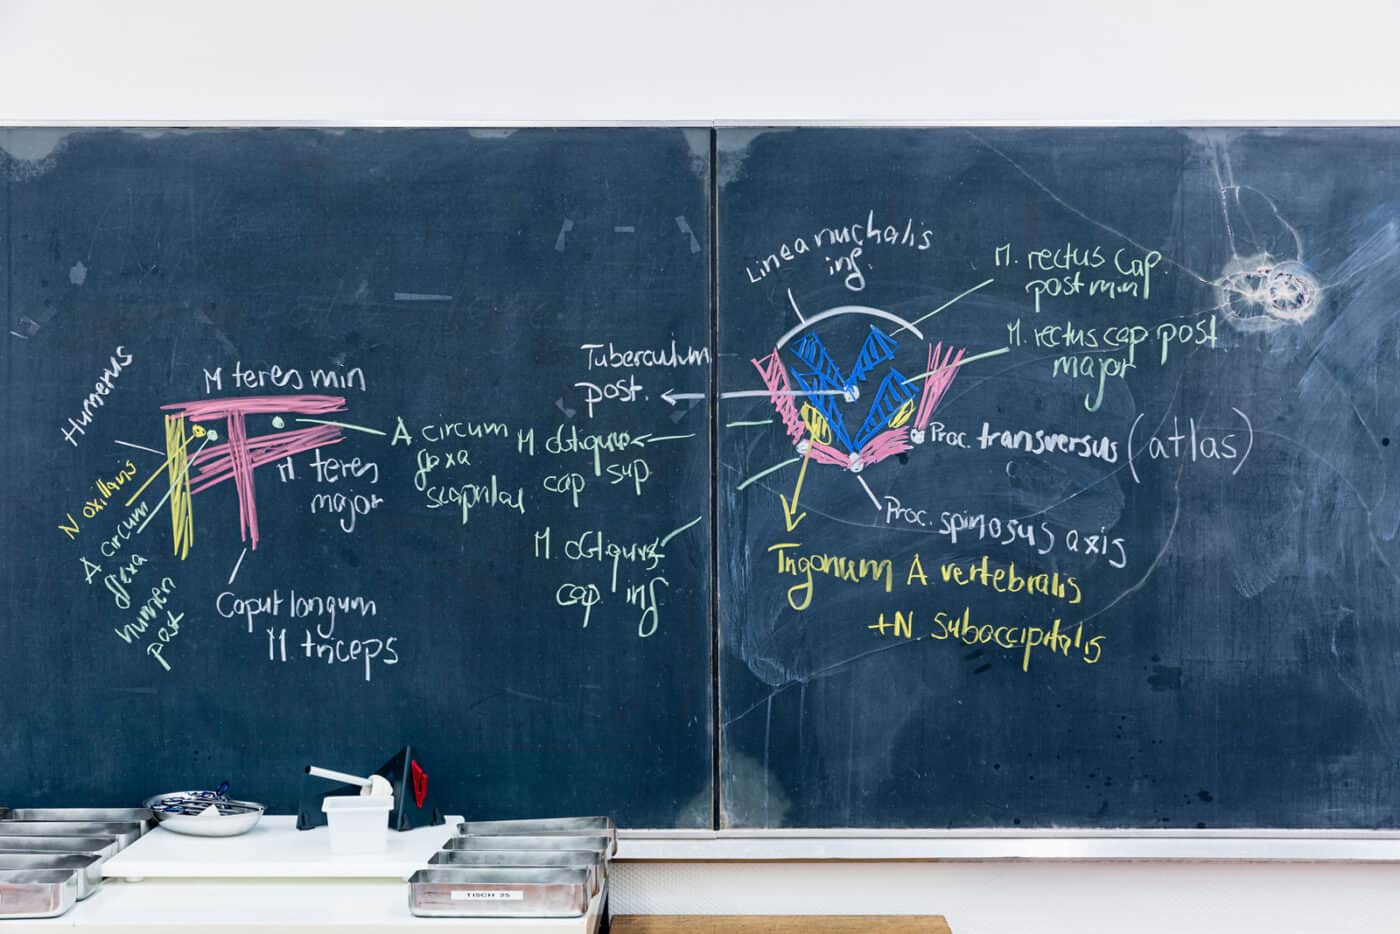 Humerus
M teres min
N axillaris
A circum
flexa
humeri
post
M. teres
major
A circum
flexa
scapular
Caput longum
M. triceps
Tuberculum
post.
M. obliquus
cap sup.
M. obliquus
cap. inf
Linea nuchalis
inf.
M. rectus cap.
post min
M. rectus cap. post
major
Proc. transversus (atlas)
Proc. spinosus axis
Trigonum A. vertebralis
+N. suboccipitalis
TISCH 35